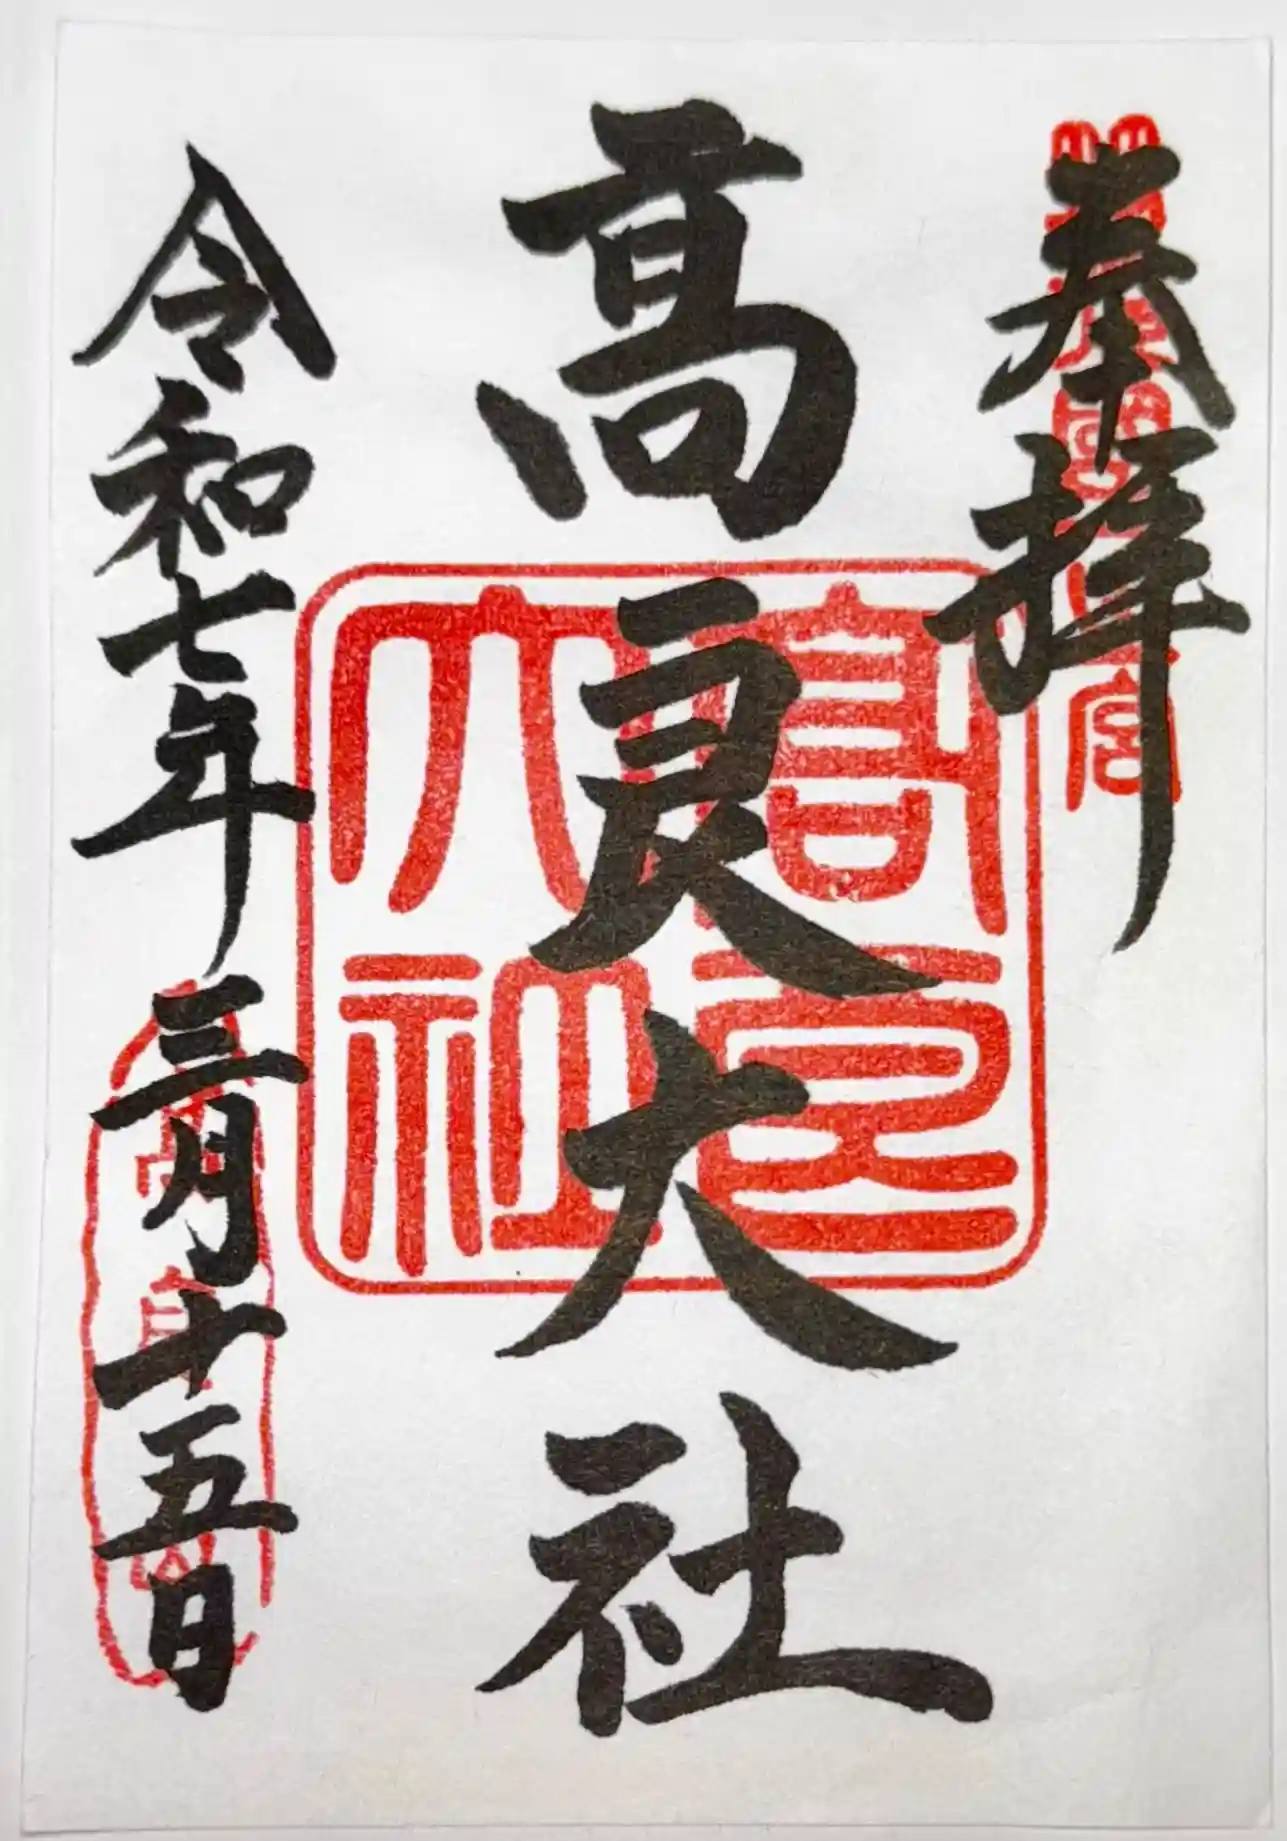 奉拝
高良大社
高良大社
令和七年三月十五日